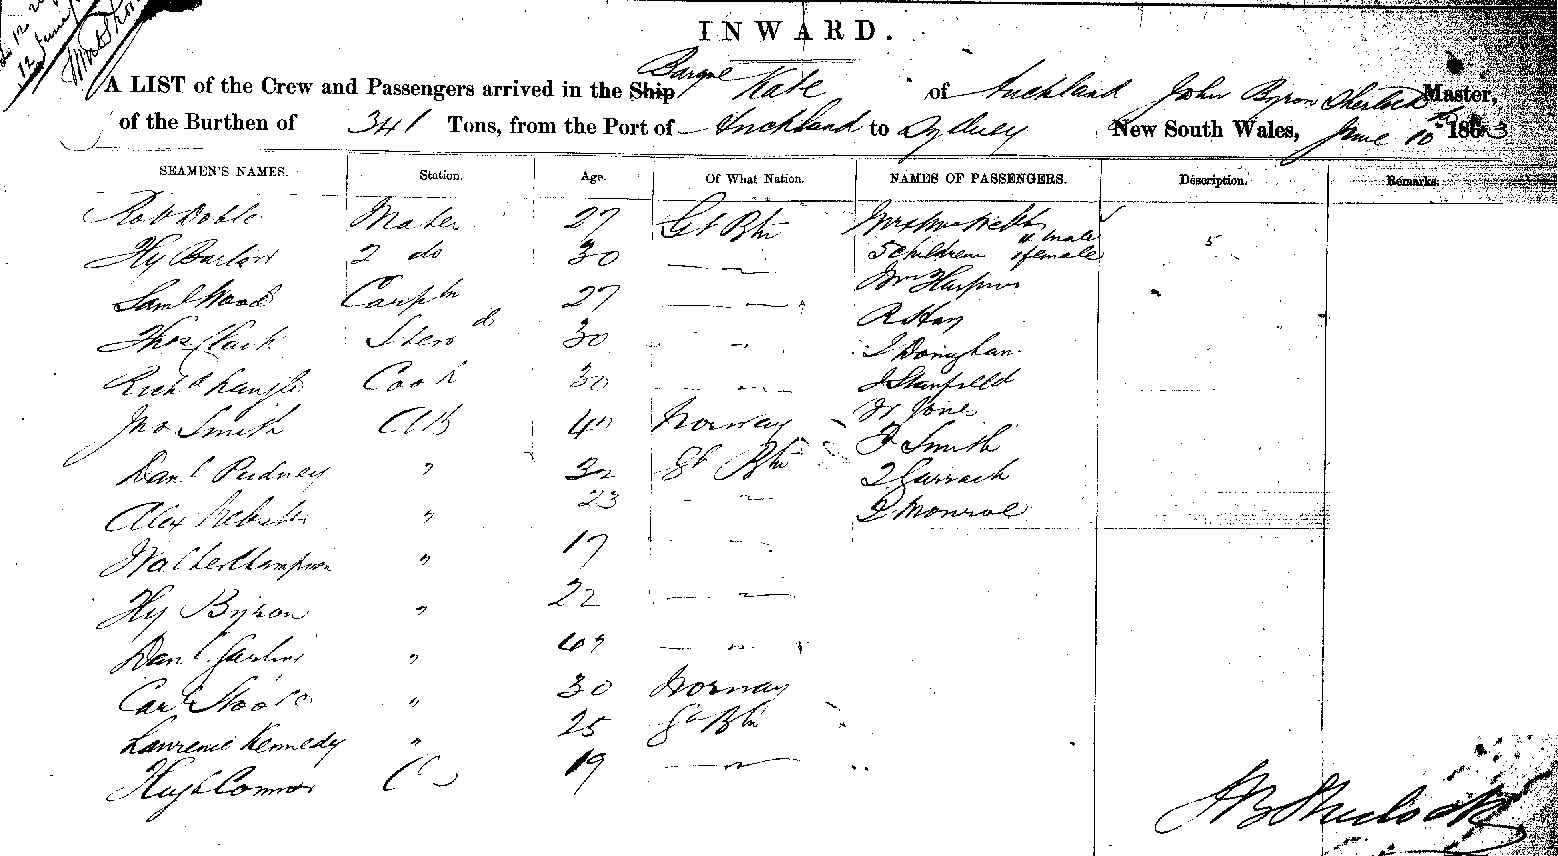 INWARD.
A LIST of the Crew and Passengers arrived in the Ship Barque Kate of Auckland John Byron Sherlock Master,
of the Burthen of 341 Tons, from the Port of Auckland to Sydney New South Wales, June 10th 1863
SEAMEN'S NAMES. Station. Age. Of What Nation. NAMES OF PASSENGERS. Description. Remarks.
Robt Doble Mate 27 Gt Btn Mr & Mrs Webb
Hy Barlow 2 do 30 — " — 5 children 4 male 1 female 5
Saml Wood Carptr 27 — " — Wm
Thos Clark Stewd 30 " " R Hay
Richd 30 Cook — " — J Donighan
Jno Smith AB 40 Norway J Stanfield
Danl Pudney " 32 Gt Btn W Jone
Alex Webster " 23 " " F Smith
Walter Champion " 17 — " — J Garrach
Hy Byron " 22 — " — D Monroe
Danl " — " —
Carl " 30 Norway
Lawrence Kennedy " 25 Gt Btn
Hugh Connor 19 — " —
J B Sherlock